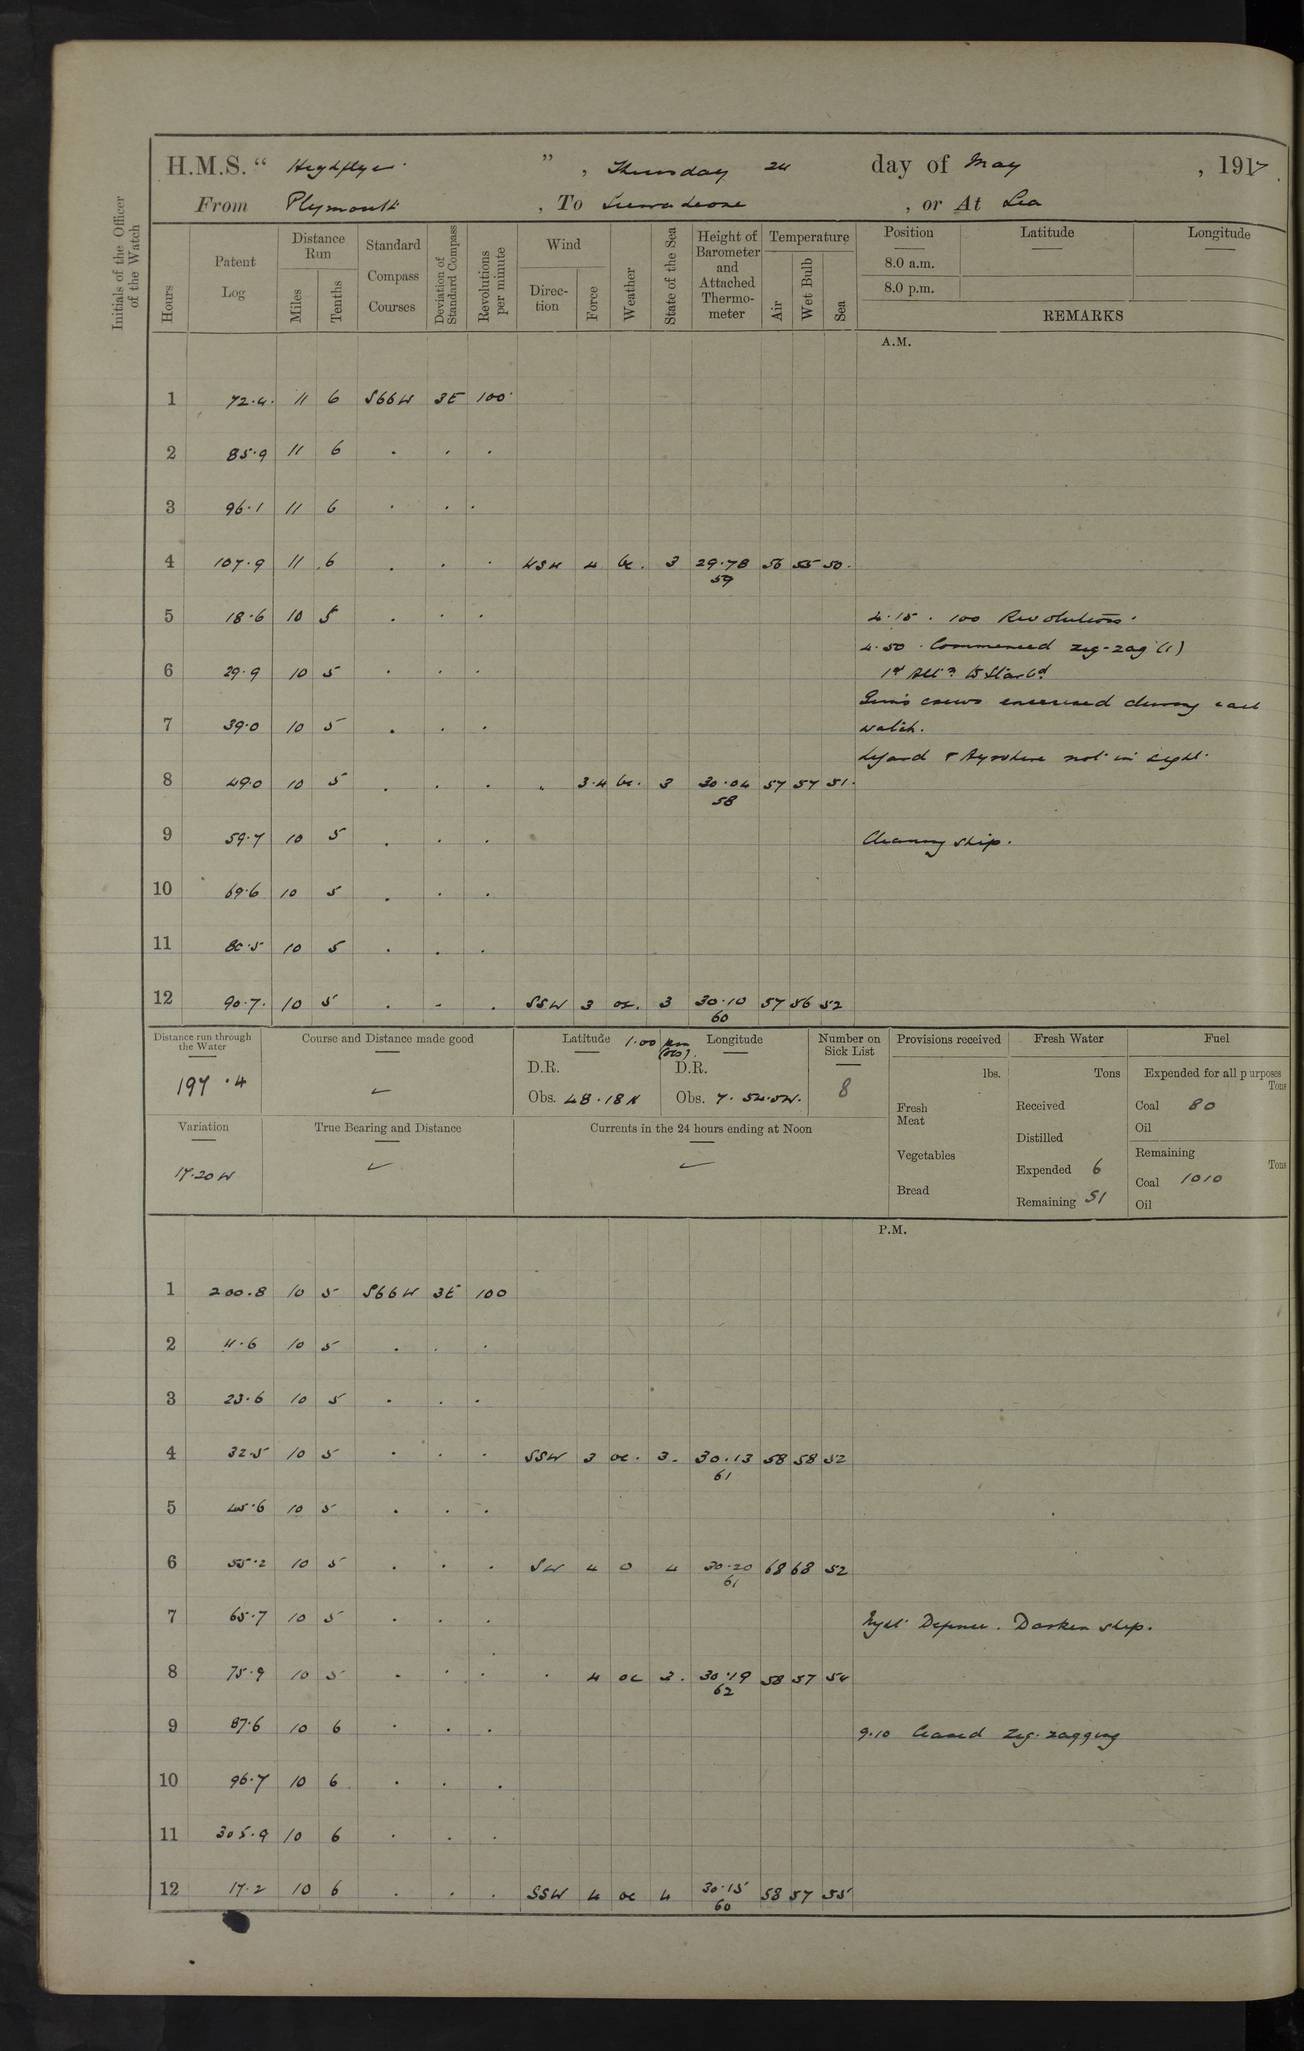 H.M.S. " Highflyer ", Thursday 24 day of May, 1917.
From Plymouth, To Sierra Leone, or At Sea
Initials of the Officer of the Watch
Hours
Patent Log
Distance Run
Miles
Tenths
Standard Compass Courses
Deviation of Standard Compass
Revolutions per minute
Wind
Direction
Force
Weather
State of the Sea
Height of Barometer and Attached Thermometer
Temperature
Air
Wet Bulb
Sea
Position Latitude Longitude
8.0 a.m.
8.0 p.m.
REMARKS
A.M.
1 72.4. 11 6 S66W 3E 100
2 85.9 11 6 . . .
3 96.1 11 6 . . .
4 107.9 11 6 . . . WSW 4 bc. 3 29.78 56 55 50.
59
5 18.6 10 5 . . . 4.15. 100 Revolutions.
4.50. Commenced zig-zag (1)
6 29.9 10 5 . . . 1st Altn to Starbd
Guns crews exercised during each
7 39.0 10 5 . . . watch.
& Ayrshire not in sight.
8 49.0 10 5 . . . . 3.4 bc. 3 30.04 57 57 51.
58
9 59.7 10 5 . . . Cleaning ship.
10 69.6 10 5 . . .
11 80.5 10 5 . . .
12 90.7. 10 5 . . . SSW 3 oc. 3 30.10 57 56 52
60
Distance run through the Water
197.4
Course and Distance made good
✓
Latitude 1.00 pm (obs). Longitude
D.R. D.R.
Obs. 48.18N Obs. 7.54.5W.
Number on Sick List
8
Provisions received
lbs.
Fresh Meat
Vegetables
Bread
Fresh Water
Tons
Received
Distilled
Expended 6
Remaining 51
Fuel
Expended for all purposes
Tons
Coal 80
Oil
Remaining
Tons
Coal 1010
Oil
Variation
17.20W
True Bearing and Distance
✓
Currents in the 24 hours ending at Noon
✓
P.M.
1 200.8 10 5 S66W 3E 100
2 11.6 10 5 . . .
3 23.6 10 5 . . .
4 32.5 10 5 . . . SSW 3 oc. 3. 30.13 58 58 52
61
5 45.6 10 5 . . .
6 55.2 10 5 . . . SW 4 o 4 30.20 68 68 52
61
7 65.7 10 5 . . . Night Defence. Darken ship.
8 75.9 10 5 . . . . 4 oc 3. 30.19 58 57 54
62
9 87.6 10 6 . . . 9.10 Ceased zig-zagging
10 96.7 10 6 . . .
11 305.9 10 6 . . .
12 17.2 10 6 . . . SSW 4 oc 4 30.15 58 57 55
60